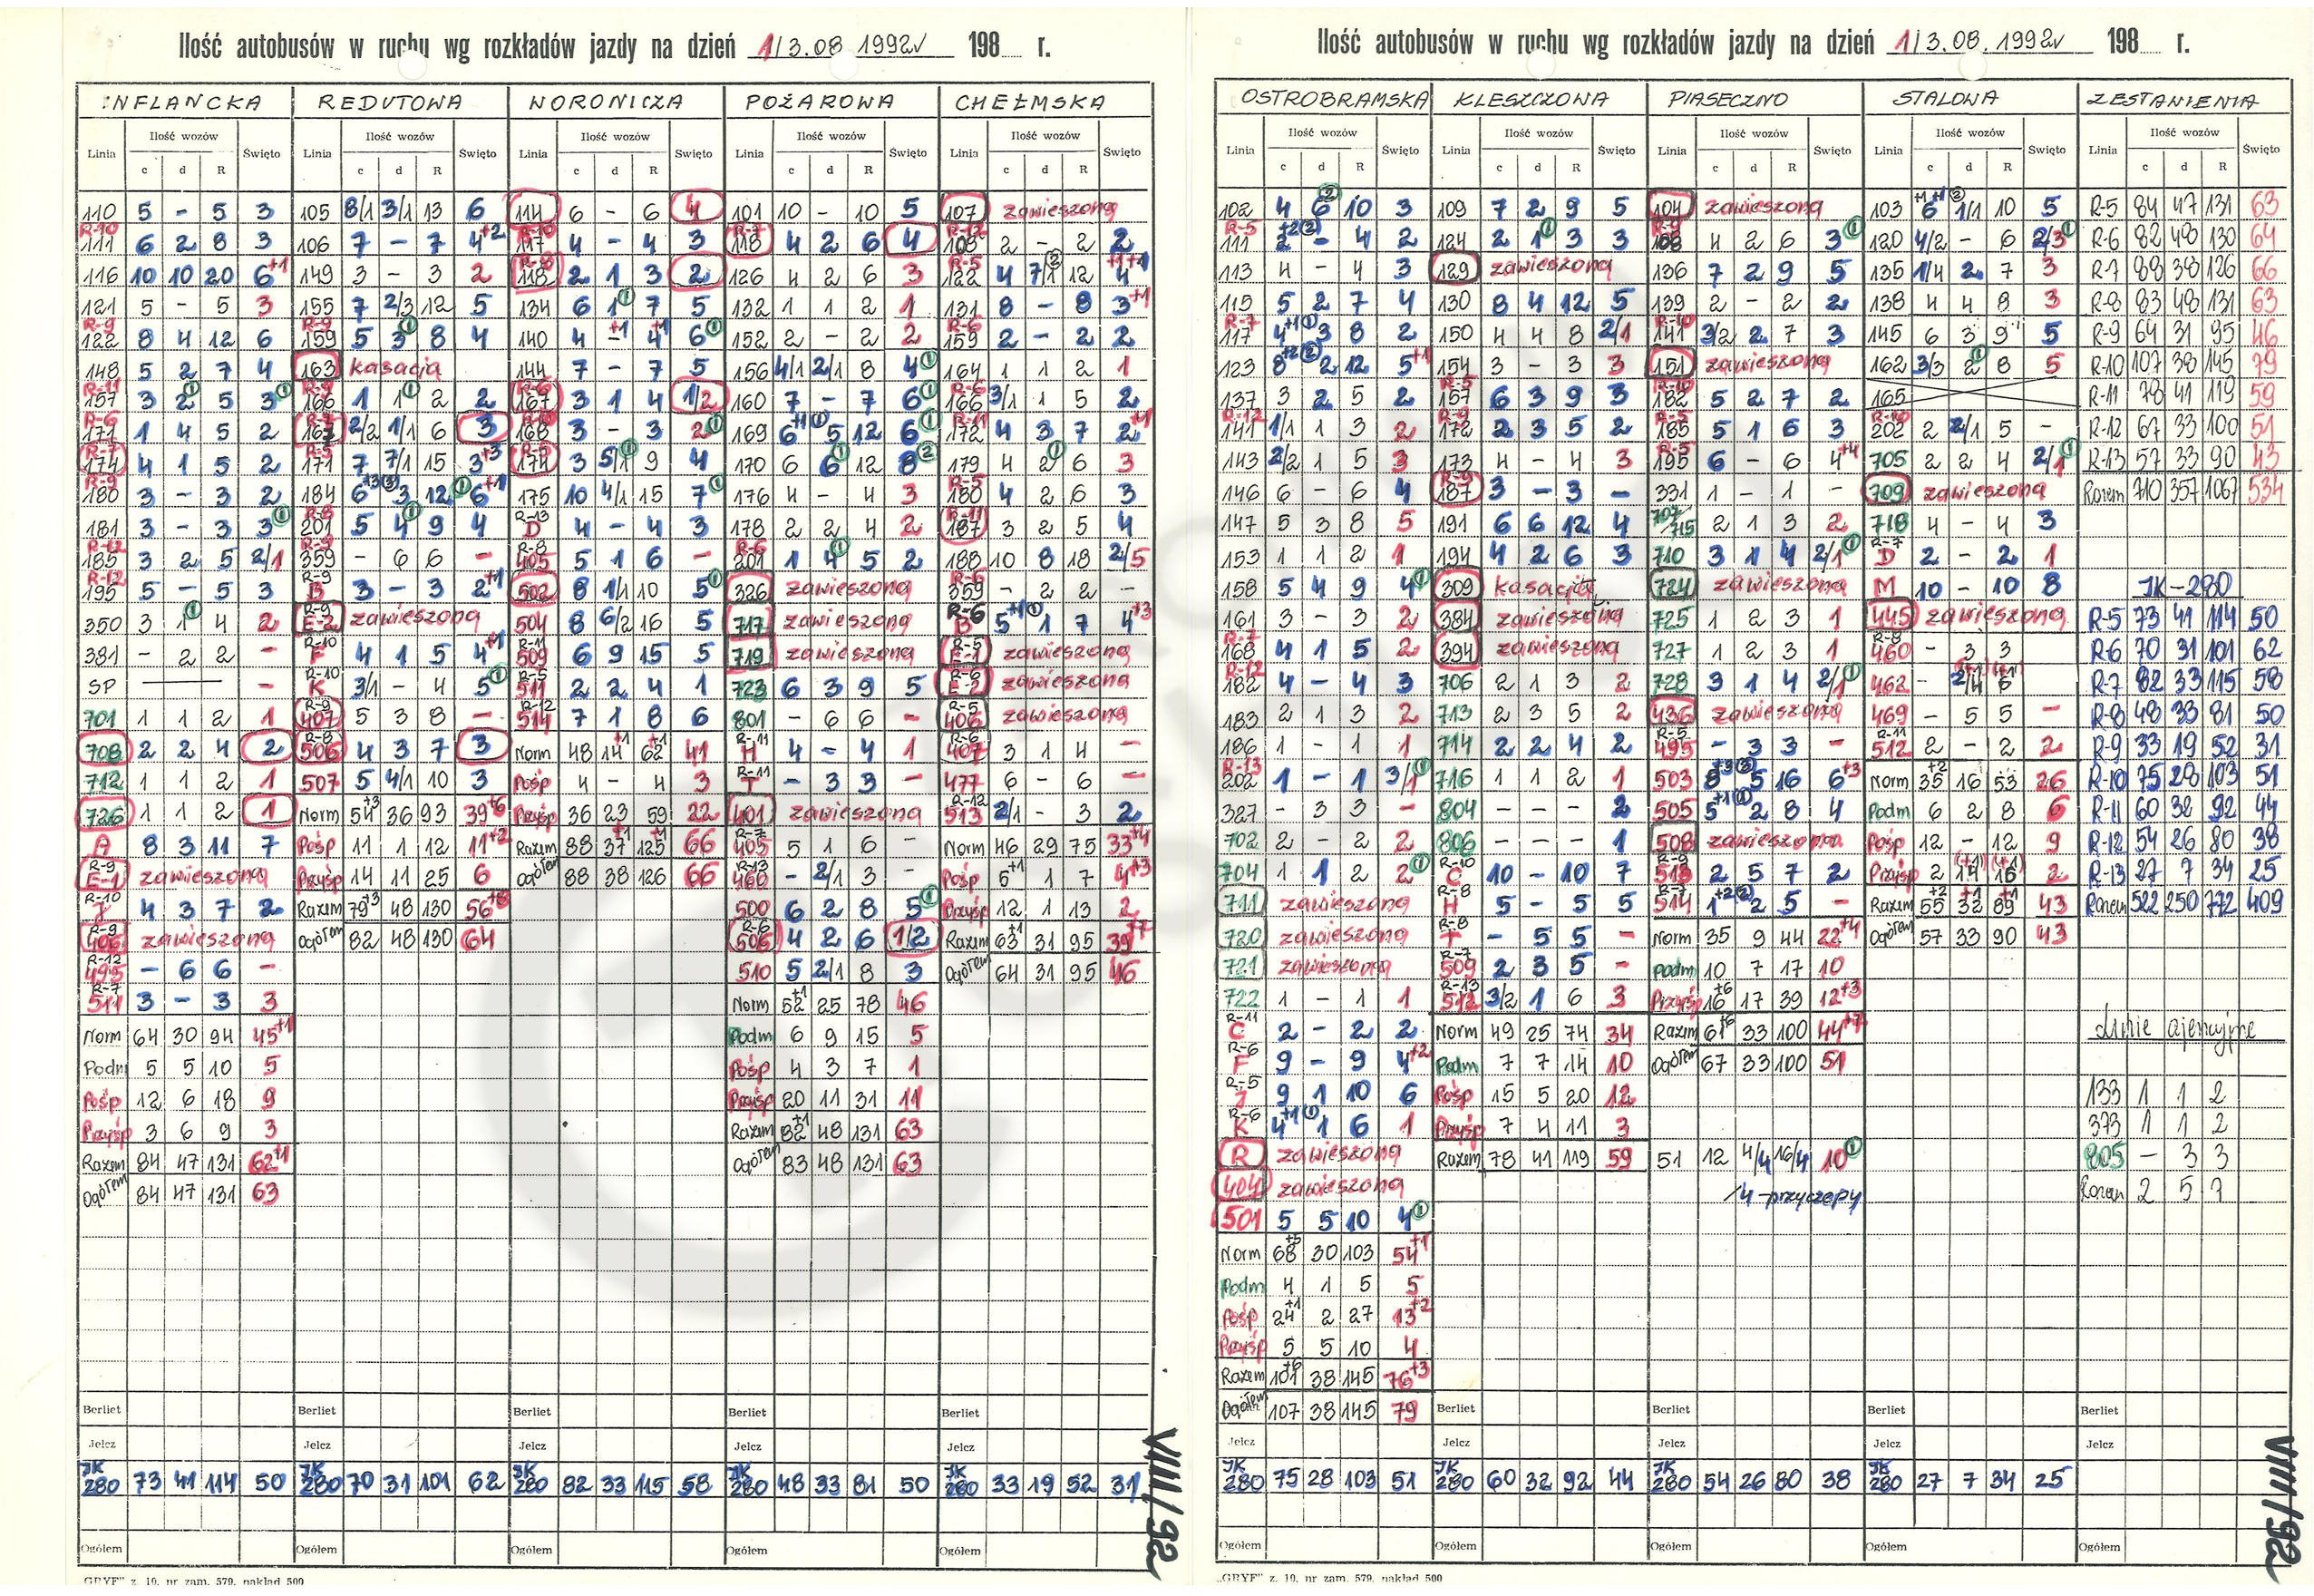 Ilość autobusów w ruchu wg rozkładów jazdy na dzień 1/3.08 1992r 198 r.
INFLANCKA REDUTOWA WORONICZA POŻAROWA CHEŁMSKA
Linia Ilość wozów Święto Linia Ilość wozów Święto Linia Ilość wozów Święto Linia Ilość wozów Święto Linia Ilość wozów Święto
c d R c d R c d R c d R c d R
110 5 - 5 3
R-10 111 6 2 8 3
116 10 10 20 6+1
121 5 - 5 3
R-9 122 8 4 12 6
148 5 2 7 4
R-11 157 3 2① 5 3①
R-6 171 1 4 5 2
R-7 174 4 1 5 2
R-9 180 3 - 3 2
181 3 - 3 3①
R-12 185 3 2 5 2/1
R-12 195 5 - 5 3
350 3 1① 4 2
381 - 2 2 -
SP -
701 1 1 2 1
708 2 2 4 2
712 1 1 2 1
726 1 1 2 1
A 8 3 11 7
R-9 E-1 zawieszona
R-10 J 4 3 7 2
R-9 406 zawieszona
R-12 495 - 6 6 -
R-7 511 3 - 3 3
Norm 64 30 94 45+1
Podm 5 5 10 5
Pośp 12 6 18 9
Przyśp 3 6 9 3
Razem 84 47 131 62+1
Ogółem 84 47 131 63
105 8/1 3/1 13 6
106 7 - 7 4+2
149 3 - 3 2
155 7 2/3 12 5
R-9 159 5 3① 8 4
163 kasacja
R-9 166 1 1① 2 2
R-7 167 2/2 1/1 6 3
R-5 171 7 7/1 15 3+3
184 6+3③ 3 12① 6+1
R-8 201 5 4① 9 4
R-9 359 - 6 6 -
R-9 B 3 - 3 2+1
R-9 E-2 zawieszona
R-10 F 4 1 5 4+1
R-10 K 3/1 - 4 5①
R-9 407 5 3 8 -
R-8 506 4 3 7 3
507 5 4/1 10 3
Norm 54+3 36 93 39+6
Pośp 11 1 12 11+2
Przyśp 14 11 25 6
Razem 79+3 48 130 56+8
Ogółem 82 48 130 64
114 6 - 6 4
R-10 117 4 - 4 3
R-8 118 2 1 3 2
134 6 1① 7 5
140 4 -+1 4+1 6①
144 7 - 7 5
R-6 167 3 1 4 1/2
R-10 168 3 - 3 2①
R-5 174 3 5/1① 9 4
175 10 4/1 15 7①
R-13 D 4 - 4 3
R-8 405 5 1 6 -
502 8 1/1 10 5①
504 8 6/2 16 5
R-11 509 6 9 15 5
R-5 511 2 2 4 1
R-12 514 7 1 8 6
Norm 48 14+1 62+1 41
Pośp 4 - 4 3
Przyśp 36 23 59 22
Razem 88 37+1 125+1 66
Ogółem 88 38 126 66
101 10 - 10 5
R-7 118 4 2 6 4
126 4 2 6 3
132 1 1 2 1
152 2 - 2 2
156 4/1 2/1 8 4①
160 7 - 7 6①
169 6+1① 5 12 6①
170 6 6① 12 8②
176 4 - 4 3
178 2 2 4 2
R-6 201 1 4① 5 2
326 zawieszona
717 zawieszona
719 zawieszona
723 6 3 9 5
801 - 6 6 -
R-11 H 4 - 4 1
R-11 T - 3 3 -
401 zawieszona
R-7 405 5 1 6 -
R-13 460 - 2/1 3 -
500 6 2 8 5①
R-6 506 4 2 6 1/2
510 5 2/1 8 3
Norm 52+1 25 78 46
Podm 6 9 15 5
Pośp 4 3 7 1
Przyśp 20 11 31 11
Razem 82+1 48 131 63
Ogółem 83 48 131 63
107 zawieszona
R-12 108 2 - 2 2
R-5 122 4 7/1② 12 4+1+1
131 8 - 8 3+1
R-6 159 2 - 2 2
164 1 1 2 1
R-6 166 3/1 1 5 2
R-11 172 4 3 7 2+1
179 4 2① 6 3
R-5 180 4 2 6 3
R-11 187 3 2 5 4
188 10 8 18 2/5
R-6 359 - 2 2 -
R-6 B 5+1① 1 7 4+3
R-5 E-1 zawieszona
R-6 E-2 zawieszona
R-5 406 zawieszona
R-6 407 3 1 4 -
477 6 - 6 -
R-12 513 2/1 - 3 2
Norm 46 29 75 33+4
Pośp 5+1 1 7 4+3
Przyśp 12 1 13 2
Razem 63+1 31 95 39+7
Ogółem 64 31 95 46
Berliet Berliet Berliet Berliet Berliet
Jelcz Jelcz Jelcz Jelcz Jelcz
JK 280 73 41 114 50 JK 280 70 31 101 62 JK 280 82 33 115 58 JK 280 48 33 81 50 JK 280 33 19 52 31
Ogółem Ogółem Ogółem Ogółem Ogółem
VIII/92
„GRYF" z. 10. nr zam. 579. nakład 500
Ilość autobusów w ruchu wg rozkładów jazdy na dzień 1/3.08.1992r 198 r.
OSTROBRAMSKA KLESZCZOWA PIASECZNO STALOWA ZESTAWIENIA
Linia Ilość wozów Święto Linia Ilość wozów Święto Linia Ilość wozów Święto Linia Ilość wozów Święto Linia Ilość wozów Święto
c d R c d R c d R c d R c d R
102 4 6② 10 3
R-5 111 2+2② - 4 2
113 4 - 4 3
115 5 2 7 4
R-7 117 4+1① 3 8 2
123 8+2② 2 12 5+1
137 3 2 5 2
R-12 141 1/1 1 3 2
143 2/2 1 5 3
146 6 - 6 4
147 5 3 8 5
153 1 1 2 1
158 5 4 9 4①
161 3 - 3 2
R-7 168 4 1 5 2
R-12 182 4 - 4 3
183 2 1 3 2
186 1 - 1 1
R-13 202 1 - 1 3/1①
327 - 3 3 -
702 2 - 2 2
704 1 1 2 2①
711 zawieszona
720 zawieszona
721 zawieszona
722 1 - 1 1
R-11 C 2 - 2 2
R-6 F 9 - 9 4+2
R-5 J 9 1 10 6
R-6 K 4+1① 1 6 1
R zawieszona
404 zawieszona
501 5 5 10 4①
Norm 68+5 30 103 54+1
Podm 4 1 5 5
Pośp 24+1 2 27 13+2
Przyśp 5 5 10 4
Razem 101+6 38 145 76+3
Ogółem 107 38 145 79
109 7 2 9 5
124 2 1① 3 3
129 zawieszona
130 8 4 12 5
150 4 4 8 2/1
154 3 - 3 3
R-5 157 6 3 9 3
R-9 172 2 3 5 2
173 4 - 4 3
R-9 187 3 - 3 -
191 6 6 12 4
194 4 2 6 3
309 kasacja
384 zawieszona
394 zawieszona
706 2 1 3 2
713 2 3 5 2
714 2 2 4 2
716 1 1 2 1
804 - - - 2
806 - - - 1
R-10 C 10 - 10 7
R-8 H 5 - 5 5
R-8 T - 5 5 -
R-7 509 2 3 5 -
R-13 512 3/2 1 6 3
Norm 49 25 74 34
Podm 7 7 14 10
Pośp 15 5 20 12
Przyśp 7 4 11 3
Razem 78 41 119 59
104 zawieszona
R-9 108 4 2 6 3①
136 7 2 9 5
139 2 - 2 2
R-10 141 3/2 2 7 3
151 zawieszona
R-10 182 5 2 7 2
R-5 185 5 1 6 3
R-5 195 6 - 6 4+4
331 1 - 1 -
707/715 2 1 3 2
710 3 1 4 2/1①
724 zawieszona
725 1 2 3 1
727 1 2 3 1
728 3 1 4 2/1①
436 zawieszona
R-5 495 - 3 3 -
503 8+3③ 5 16 6+3
505 5+1① 2 8 4
508 zawieszona
R-9 513 2 5 7 2
R-7 514 1+2② 2 5 -
Norm 35 9 44 22+4
Podm 10 7 17 10
Przyśp 16+6 17 39 12+3
Razem 61+6 33 100 44+7
Ogółem 67 33 100 51
51 12 4/4 16/4 10①
/4-przyczepy
103 6+1+1 1/1② 10 5
120 4/2 - 6 2/3①
135 1/4 2 7 3
138 4 4 8 3
145 6 3 9 5
162 3/3 2① 8 5
165
R-10 202 2 2/1 5 -
705 2 2 4 2/1①
709 zawieszona
718 4 - 4 3
R-7 D 2 - 2 1
M 10 - 10 8
445 zawieszona
R-8 460 - 3 3
462 - 2/4 6
469 - 5 5 -
R-11 512 2 - 2 2
Norm 35+2 16 53 26
Podm 6 2 8 6
Pośp 12 - 12 9
Przyśp 2 14(+1) 16(+1) 2
Razem 55+2 32+1 89+1 43
Ogółem 57 33 90 43
R-5 84 47 131 63
R-6 82 48 130 64
R-7 88 38 126 66
R-8 83 48 131 63
R-9 64 31 95 46
R-10 107 38 145 79
R-11 78 41 119 59
R-12 67 33 100 51
R-13 57 33 90 43
Razem 710 357 1067 534
JK-280
R-5 73 41 114 50
R-6 70 31 101 62
R-7 82 33 115 58
R-8 48 33 81 50
R-9 33 19 52 31
R-10 75 28 103 51
R-11 60 32 92 44
R-12 54 26 80 38
R-13 27 7 34 25
Razem 522 250 772 409
Linie ajencyjne
133 1 1 2
373 1 1 2
805 - 3 3
Razem 2 5 7
Berliet Berliet Berliet Berliet
Jelcz Jelcz Jelcz Jelcz Jelcz
JK 280 75 28 103 51 JK 280 60 32 92 44 JK 280 54 26 80 38 JK 280 27 7 34 25
Ogółem Ogółem Ogółem Ogółem Ogółem
VIII/92
„GRYF" z. 10. nr zam. 579. nakład 500